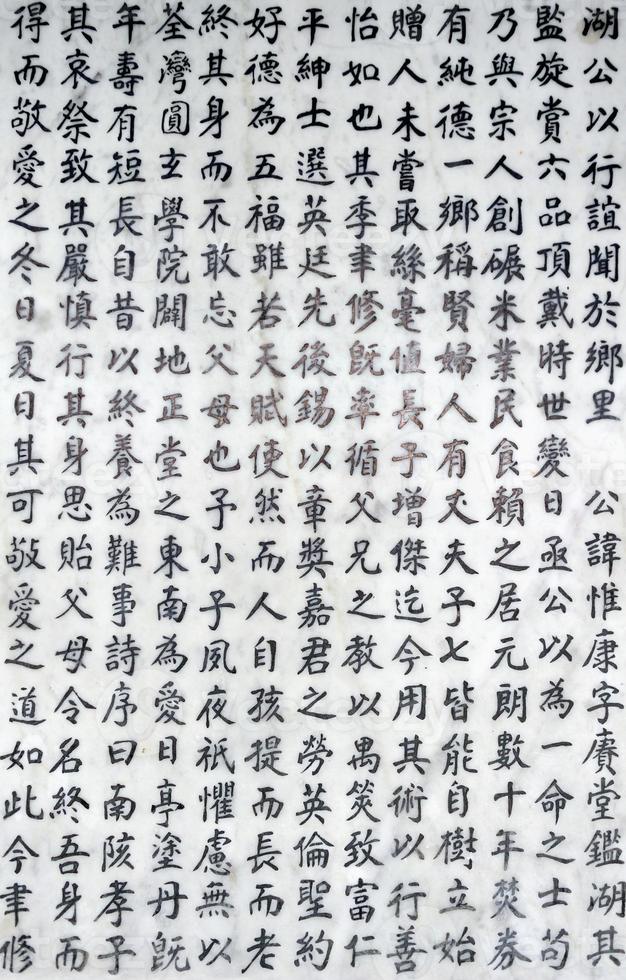 湖公以行誼聞於鄉里　公諱惟康字賡堂鑑湖其
監旋賞六品頂戴時世變日亟公以為一命之士苟
乃與宗人創碾米業民食賴之居元朗數十年焚券
有純德一鄉稱賢婦人有丈夫子七皆能自樹立始
贈人未嘗取絲毫值長子增傑迄今用其術以行善
怡如也其季聿修既率循父兄之教以禺筴致富仁
平紳士選英廷先後錫以章獎嘉君之勞英倫聖約
好德為五福雖若天賦使然而人自孩提而長而老
終其身而不敢忘父母也予小子夙夜祇懼慮無以
荃灣圓玄學院闢地正堂之東南為愛日亭塗丹既
年壽有短長自昔以終養為難事詩序曰南陔孝子
其哀祭致其嚴慎行其身思貽父母令名終吾身而
得而敬愛之冬日夏日其可敬愛之道如此今聿修